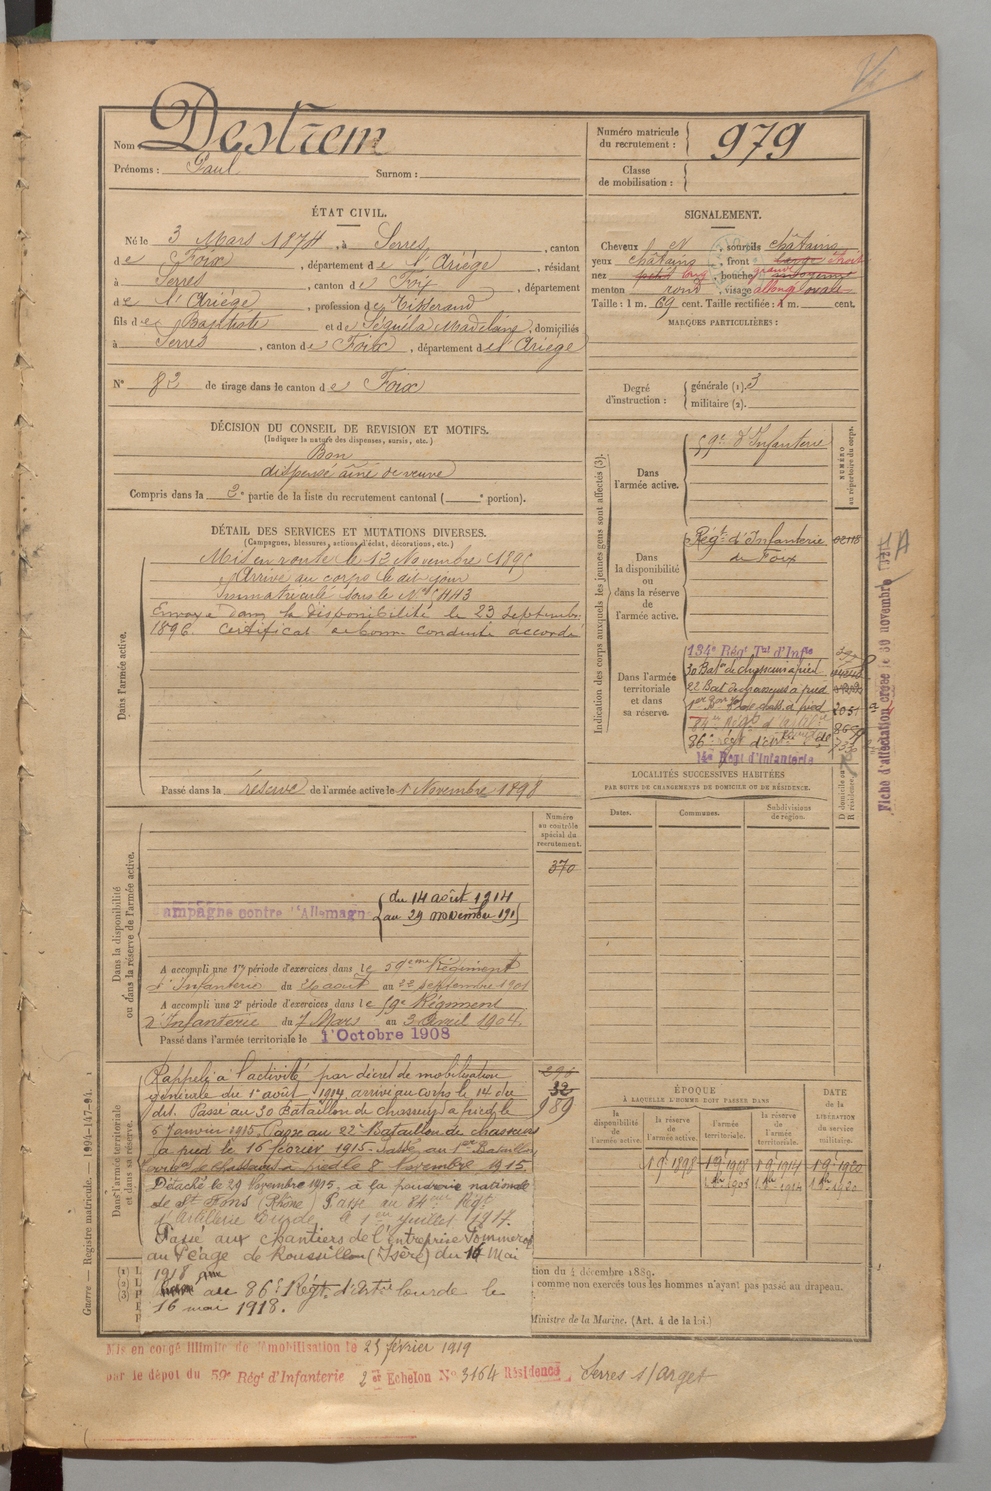 Nom Destrem
Prénoms : Paul Surnom :
Numéro matricule du recrutement : 979
Classe de mobilisation :
ÉTAT CIVIL.
Né le 3 Mars 1874, à Serres, canton
de Foix, département de l'Ariége, résidant
à Serres, canton de Foix, département
de l'Ariége, profession de Tisserand
fils de Baptiste et de Séguéla Madelaine, domiciliés
à Serres, canton de Foix, département de l'Ariége
N° 82 de tirage dans le canton de Foix
SIGNALEMENT.
Cheveux sourcils châtains
yeux châtains, front
nez petit long, bouche grande
menton rond, visage allongé ovale
Taille : 1 m. 69 cent. Taille rectifiée : 1 m. cent.
MARQUES PARTICULIÈRES :
Degré d'instruction : générale (1). 3
militaire (2).
DÉCISION DU CONSEIL DE REVISION ET MOTIFS.
(Indiquer la nature des dispenses, sursis, etc.)
Bon
dispensé aîné de veuve
Compris dans la 2e partie de la liste du recrutement cantonal ( e portion).
DÉTAIL DES SERVICES ET MUTATIONS DIVERSES.
(Campagnes, blessures, actions d'éclat, décorations, etc.)
Dans l'armée active.
Mis en route le 12 Novembre 1895
Arrivé au corps le dit jour
Immatriculé sous le N° 4443
Envoyé dans la disponibilité le 23 Septembre
1896. Certificat de bonne conduite accordé
Passé dans la réserve de l'armée active le 1 Novembre 1898
Indication des corps auxquels les jeunes gens sont affectés (3).
NUMÉRO au répertoire du corps.
Dans l'armée active.
59e d'Infanterie
Dans la disponibilité ou dans la réserve de l'armée active.
Régt d'Infanterie
de Foix
Dans l'armée territoriale et dans sa réserve.
134e Régt Tal d'Infie
30 Baton de chasseurs à pied
22 Bat de chasseurs à pied
2051
84e Régt d'Artie
86e régt d'artie
14e Régt d'Infanterie
Fiche d'affectation créée le 30 novembre
LOCALITÉS SUCCESSIVES HABITÉES
PAR SUITE DE CHANGEMENTS DE DOMICILE OU DE RÉSIDENCE.
Dates. Communes. Subdivisions de région. D domicile ou R résidence.
Numéro au contrôle spécial du recrutement.
370
Dans la disponibilité ou dans la réserve de l'armée active.
ampagne contre l'Allemagn
du 14 août 1914
au 29 novembre 1915
A accompli une 1re période d'exercices dans le 59eme Régiment
d'Infanterie du 26 août au 22 septembre 1901
A accompli une 2e période d'exercices dans le 59e Régiment
d'Infanterie du 7 Mars au 3 Avril 1904.
Passé dans l'armée territoriale le 1 Octobre 1908
Dans l'armée territoriale et dans sa réserve.
Rappelé à l'activité par décret de mobilisation
générale du 1er août 1914, arrivé au corps le 14 du
dit. Passé au 30 Bataillon de chasseurs à pied le
6 Janvier 1915. Passé au 22e Bataillon de chasseurs
à pied le 16 février 1915. Passé au 1er Bataillon
de chasseurs à pied le 8 Novembre 1915.
Détaché le 29 Novembre 1915, à la poudrerie nationale
de St Fons Rhône Passé au 84eme Régt
d'Artillerie Lourde le 1er Juillet 1917.
Passé aux chantiers de l'entreprise Pommerol
au Péage de Roussillon (Isère) du 16 Mai
1918
au 86e Régt d'artie lourde le
16 mai 1918.
32
989
ÉPOQUE
À LAQUELLE L'HOMME DOIT PASSER DANS
la disponibilité de l'armée active. la réserve de l'armée active. l'armée territoriale. la réserve de l'armée territoriale.
DATE de la LIBÉRATION du service militaire.
1 9 1898 1 9 1908 1 9 1914 1 9 1920
tion du 4 décembre 1889.
comme non exercés tous les hommes n'ayant pas passé au drapeau.
Ministre de la Marine. (Art. 4 de la loi.)
Guerre. — Registre matricule. — 1994-147-94.
Mis en congé illimité de démobilisation le 25 février 1919
par le dépot du 59e Régt d'Infanterie 2e Echelon N° 3164 Résidence Serres s/ arget